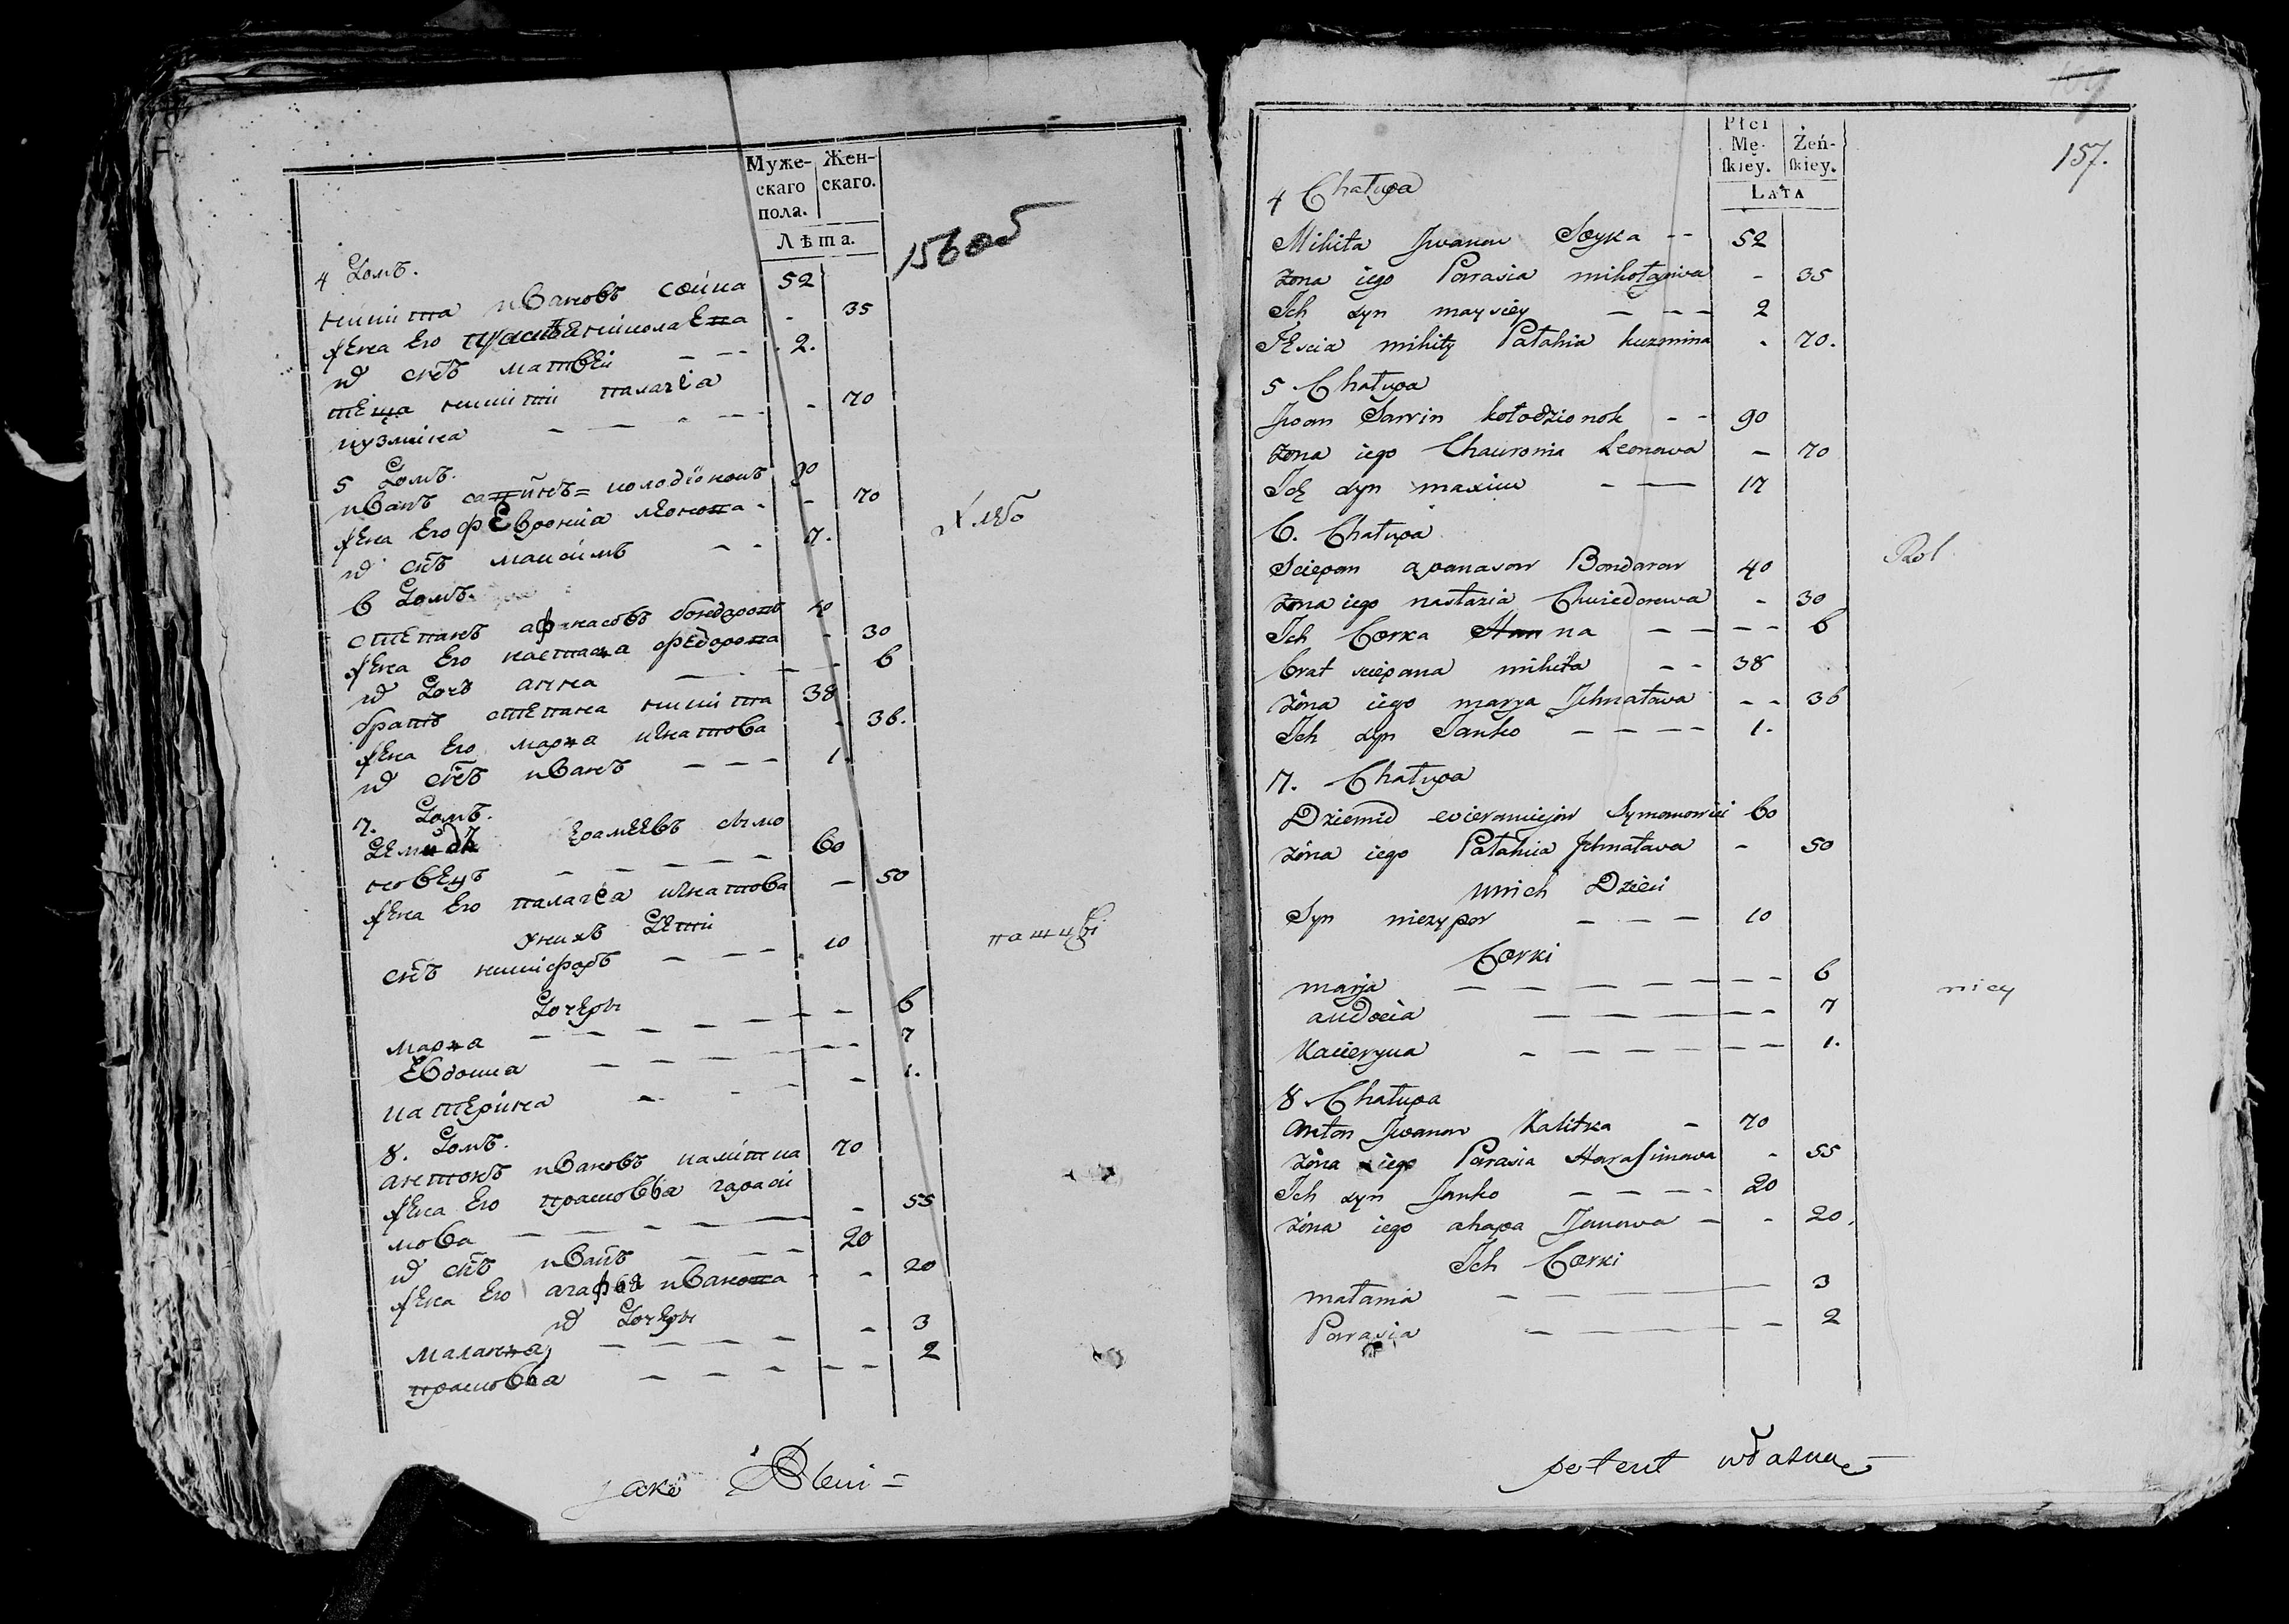 Муже-
скаго
пола.
Жен-
скаго.
Лѣта.
156 об
4 Домъ.
никита ивановъ сойка 52
жена его прасковя николаева - 35
их снъ матвей - - - 2.
теща никити палагеа
кузмина - - - - - 70
5 Домъ.
иванъ савинъ = колодіонокъ 90
жена его феврониа леонова - - 70
их снъ максимъ - - 17.
6 Домъ.
степанъ афанасовъ бондаровъ 40
жена его настася федорова - 30
их дочь анна - - - 6
братъ степана никита 38
жена его маря игнатова - 36.
их снъ иванъ - - - 1.
7. Домъ.
Демидъ ерамеевъ симо
новецъ - - - - - 60
жена его палагеа игнатова - 50
у нихъ дети
снъ никифоръ - - - 10
дочери
маря - - - - - - - - 6
Евдокиа - - - - - - - 7
катерина - - - - - 1.
8. Домъ.
антонъ ивановъ калитка 70
жена его прасковья гараси
мова - - - - - - 55
их снъ иванъ - - - 20
жена его агафья иванова - - 20
их дочери
маланя - - - - - 3
прасковья - - - - - - 2
Хлебо
пашци
jako
157.
Płci
Mę-
skiey.
Żeń-
skiey.
LATA
4 Chałupa
Mikita Jwanow Soyka - - 52
żona iego Parasia mikołajewa - 35
Ich syn maysiey - - - 2
Teścia mikity Pałahia kuzmina - 70.
5 Chałupa
Jwan Sawin kołodzionok - - 90
żona iego Chauronia Leonowa - 70
Ich syn maxim - - - 17
6. Chałupa
Sciepan apanasow Bondarow 40
żona iego nastazia Chwiedorowa - 30
Ich Corka Hanna - - - - 6
brat sciepana mikita - - 38
żona iego marya Jhnatawa - - 36
Ich syn Janko - - - - 1.
7. Chałupa
Dziemid wieramiejow Symonowici 60
żona iego Pałahia Jhnatawa - 50
unich Dzieci
Syn niczypor - - - 10
Corki
marja - - - - - - - - 6
audocia - - - - - - 7
Kacieryna - - - - - - - 1.
8 Chałupa
anton Jwanow Kalitka - 70
żona iego Parasia Harasimowa - 55
Ich syn Janko - - - - 20
żona iego ahapa Janowa - - 20.
Ich Corki
małania - - - - - 3
Parasia - - - - - - 2
Rol
nicy
petent własny